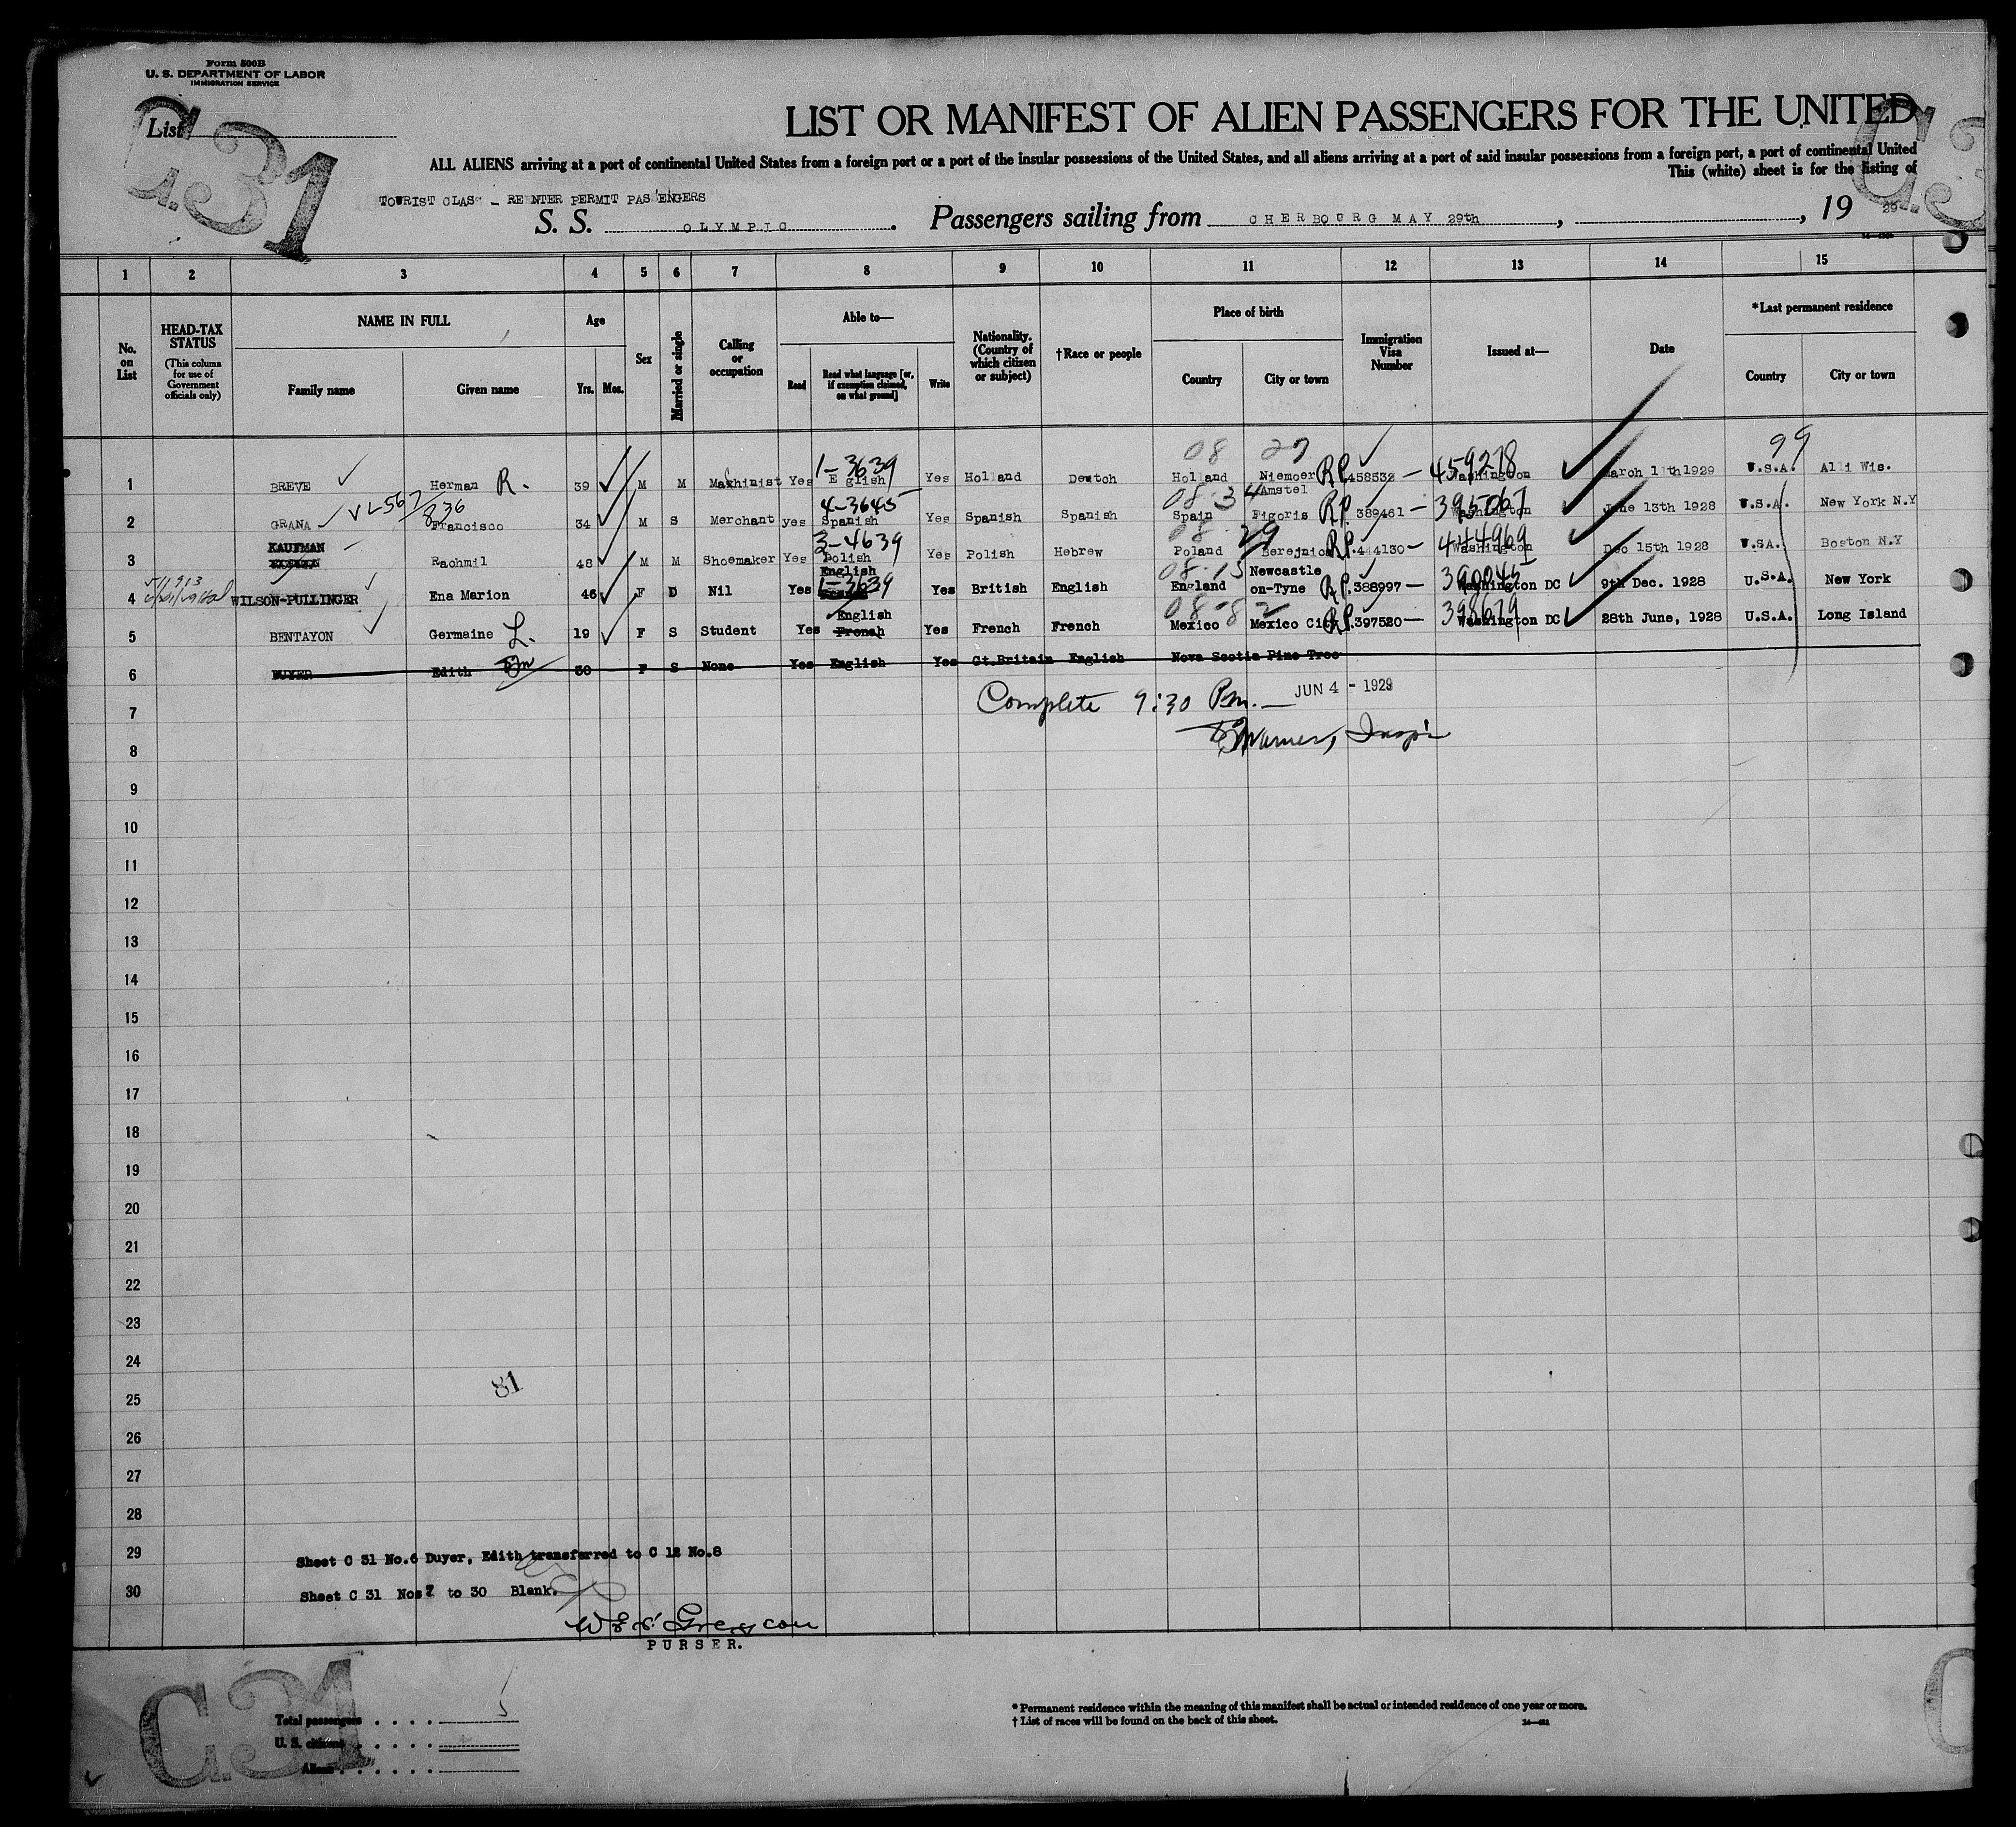 Form 500B
U. S. DEPARTMENT OF LABOR
IMMIGRATION SERVICE
List
C.31
LIST OR MANIFEST OF ALIEN PASSENGERS FOR THE UNITED
ALL ALIENS arriving at a port of continental United States from a foreign port or a port of the insular possessions of the United States, and all aliens arriving at a port of said insular possessions from a foreign port, a port of continental United
This (white) sheet is for the listing of
TOURIST CLASS - REENTER PERMIT PASSENGERS
S. S. OLYMPIC. Passengers sailing from CHERBOURG MAY 29th, , 19 29
1 2 3 4 5 6 7 8 9 10 11 12 13 14 15
No. on List
HEAD-TAX STATUS (This column for use of Government officials only)
NAME IN FULL Family name Given name
Age Yrs. Mos.
Sex
Married or single
Calling or occupation
Able to— Read Read what language [or, if exemption claimed, on what ground] Write
Nationality. (Country of which citizen or subject)
†Race or people
Place of birth Country City or town
Immigration Visa Number
Issued at—
Date
*Last permanent residence Country City or town
08 27 99
1 BREVE Herman R. 39 M M Makhinist Yes 1-3639 English Yes Holland Dewtoh Holland Niemoer Amstel RP. 458532 — 459278 Washington March 11th1929 U.S.A. Alli Wis.
VL-567/836
2 GRANA Francisco 34 M S Merchant yes 4-3645 Spanish Yes Spanish Spanish 08-34 Spain Figoris RP. 389461 — 395067 Washington June 13th 1928 U.S.A. New York N.Y
3 KAUFMAN Rachmil 48 M M Shoemaker Yes 3-4639 Polish Yes Polish Hebrew 08-29 Poland Berejnica RP. 444130 — 444969 Washington Dec 15th 1928 U.S.A. Boston N.Y
4 WILSON-PULLINGER Ena Marion 46 F D Nil Yes English 1-3639 Yes British English 08-15 England Newcastle on-Tyne RP. 388997 — 390045 Washington DC 9th Dec. 1928 U.S.A. New York
5 BENTAYON Germaine L. 19 F S Student Yes English French Yes French French 08-82 Mexico Mexico City RP. 397520 — 398679 Washington DC 28th June, 1928 U.S.A. Long Island
6 DUYER Edith 30 F S None Yes English Yes Gt.Britain English Nova Scotia Pine Tree
7 Complete 9:30 Pm. — JUN 4 - 1929
8 Warner, Insp'r
9
10
11
12
13
14
15
16
17
18
19
20
21
22
23
24
81
25
26
27
28
29 Sheet C 31 No.6 Duyer, Edith transferred to C 12 No.8
30 Sheet C 31 Nos 7 to 30 Blank.
PURSER.
C.31
Total passengers . . . . 5
U. S. citizens . . . .
Aliens . . . . . .
* Permanent residence within the meaning of this manifest shall be actual or intended residence of one year or more.
† List of races will be found on the back of this sheet.